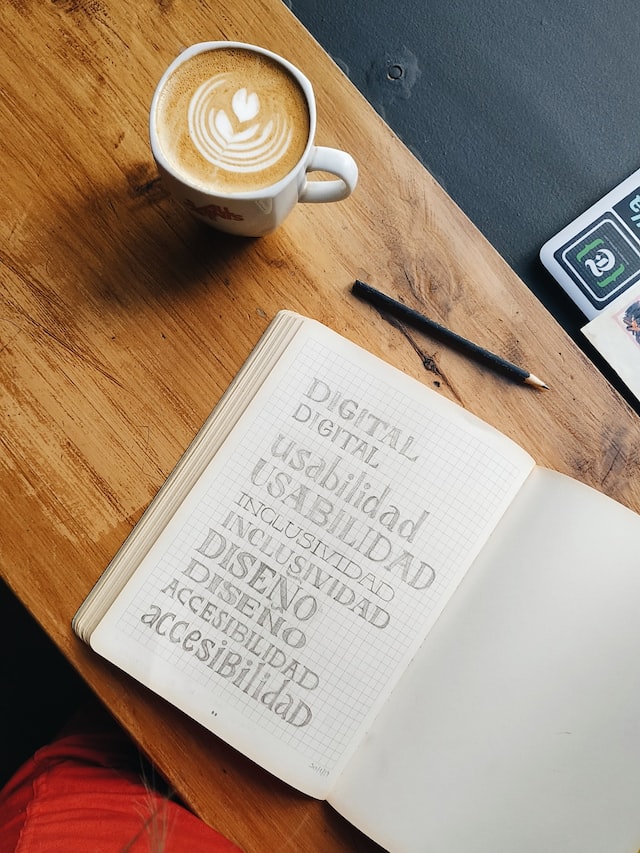 DIGITAL
DIGITAL
usabilidad
USABILIDAD
INCLUSIVIDAD
INCLUSIVIDAD
DISEÑO
DISEÑO
ACCESIBILIDAD
accesibilidad